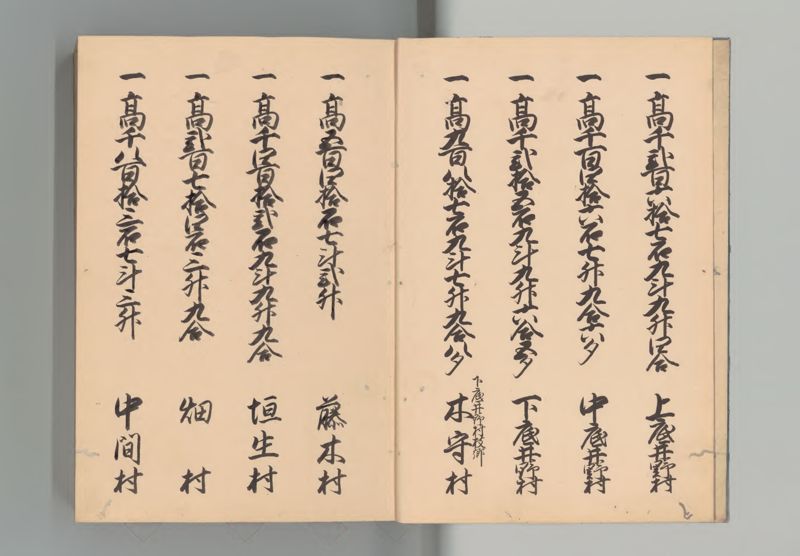 一高千弐百六拾七石九斗九升四合 上底井野村
一高千百四拾六石七升九合六夕 中底井野村
一高千弐拾五石九斗九升六合五夕 下底井野村
一高九百八拾七石九斗七升九合八夕 下底井野村枝郷 木守村
一高五百四拾石七斗弐升 藤木村
一高千四百拾弐石九斗九升九合 垣生村
一高弐百七拾四石三升九合 畑村
一高千八百拾三石七斗三升 中間村